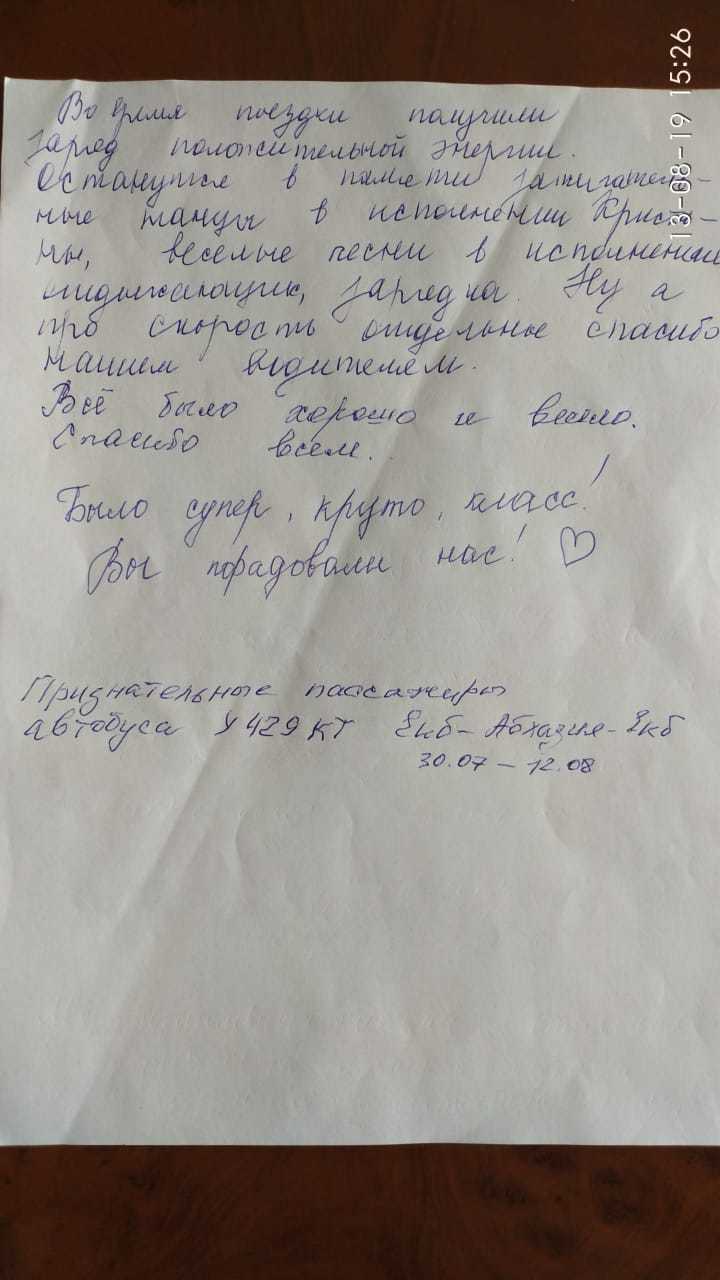 Во время поездки получили
заряд положительной энергии.
Останутся в памяти зажигатель-
ные танцы в исполнении Крист-
ны, веселые песни в исполнении
отдыхающих, зарядка. Ну а
про скорость отдельное спасибо
нашем водителям.
Всё было хорошо и весело.
Спасибо всем.
Было супер, круто, класс!
Вы порадовали нас! ♡
Признательные пассажиры
автобуса У 429 КТ Екб-Абхазия-Екб
30.07 - 12.08
13-08-19 15:26